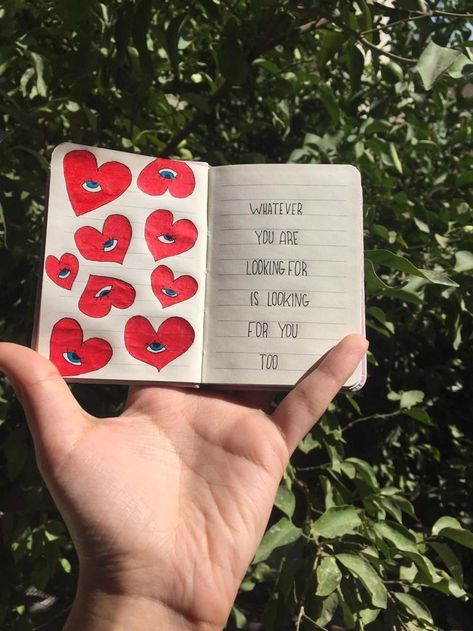 WHATEVER
YOU ARE
LOOKING FOR
IS LOOKING
FOR YOU
TOO